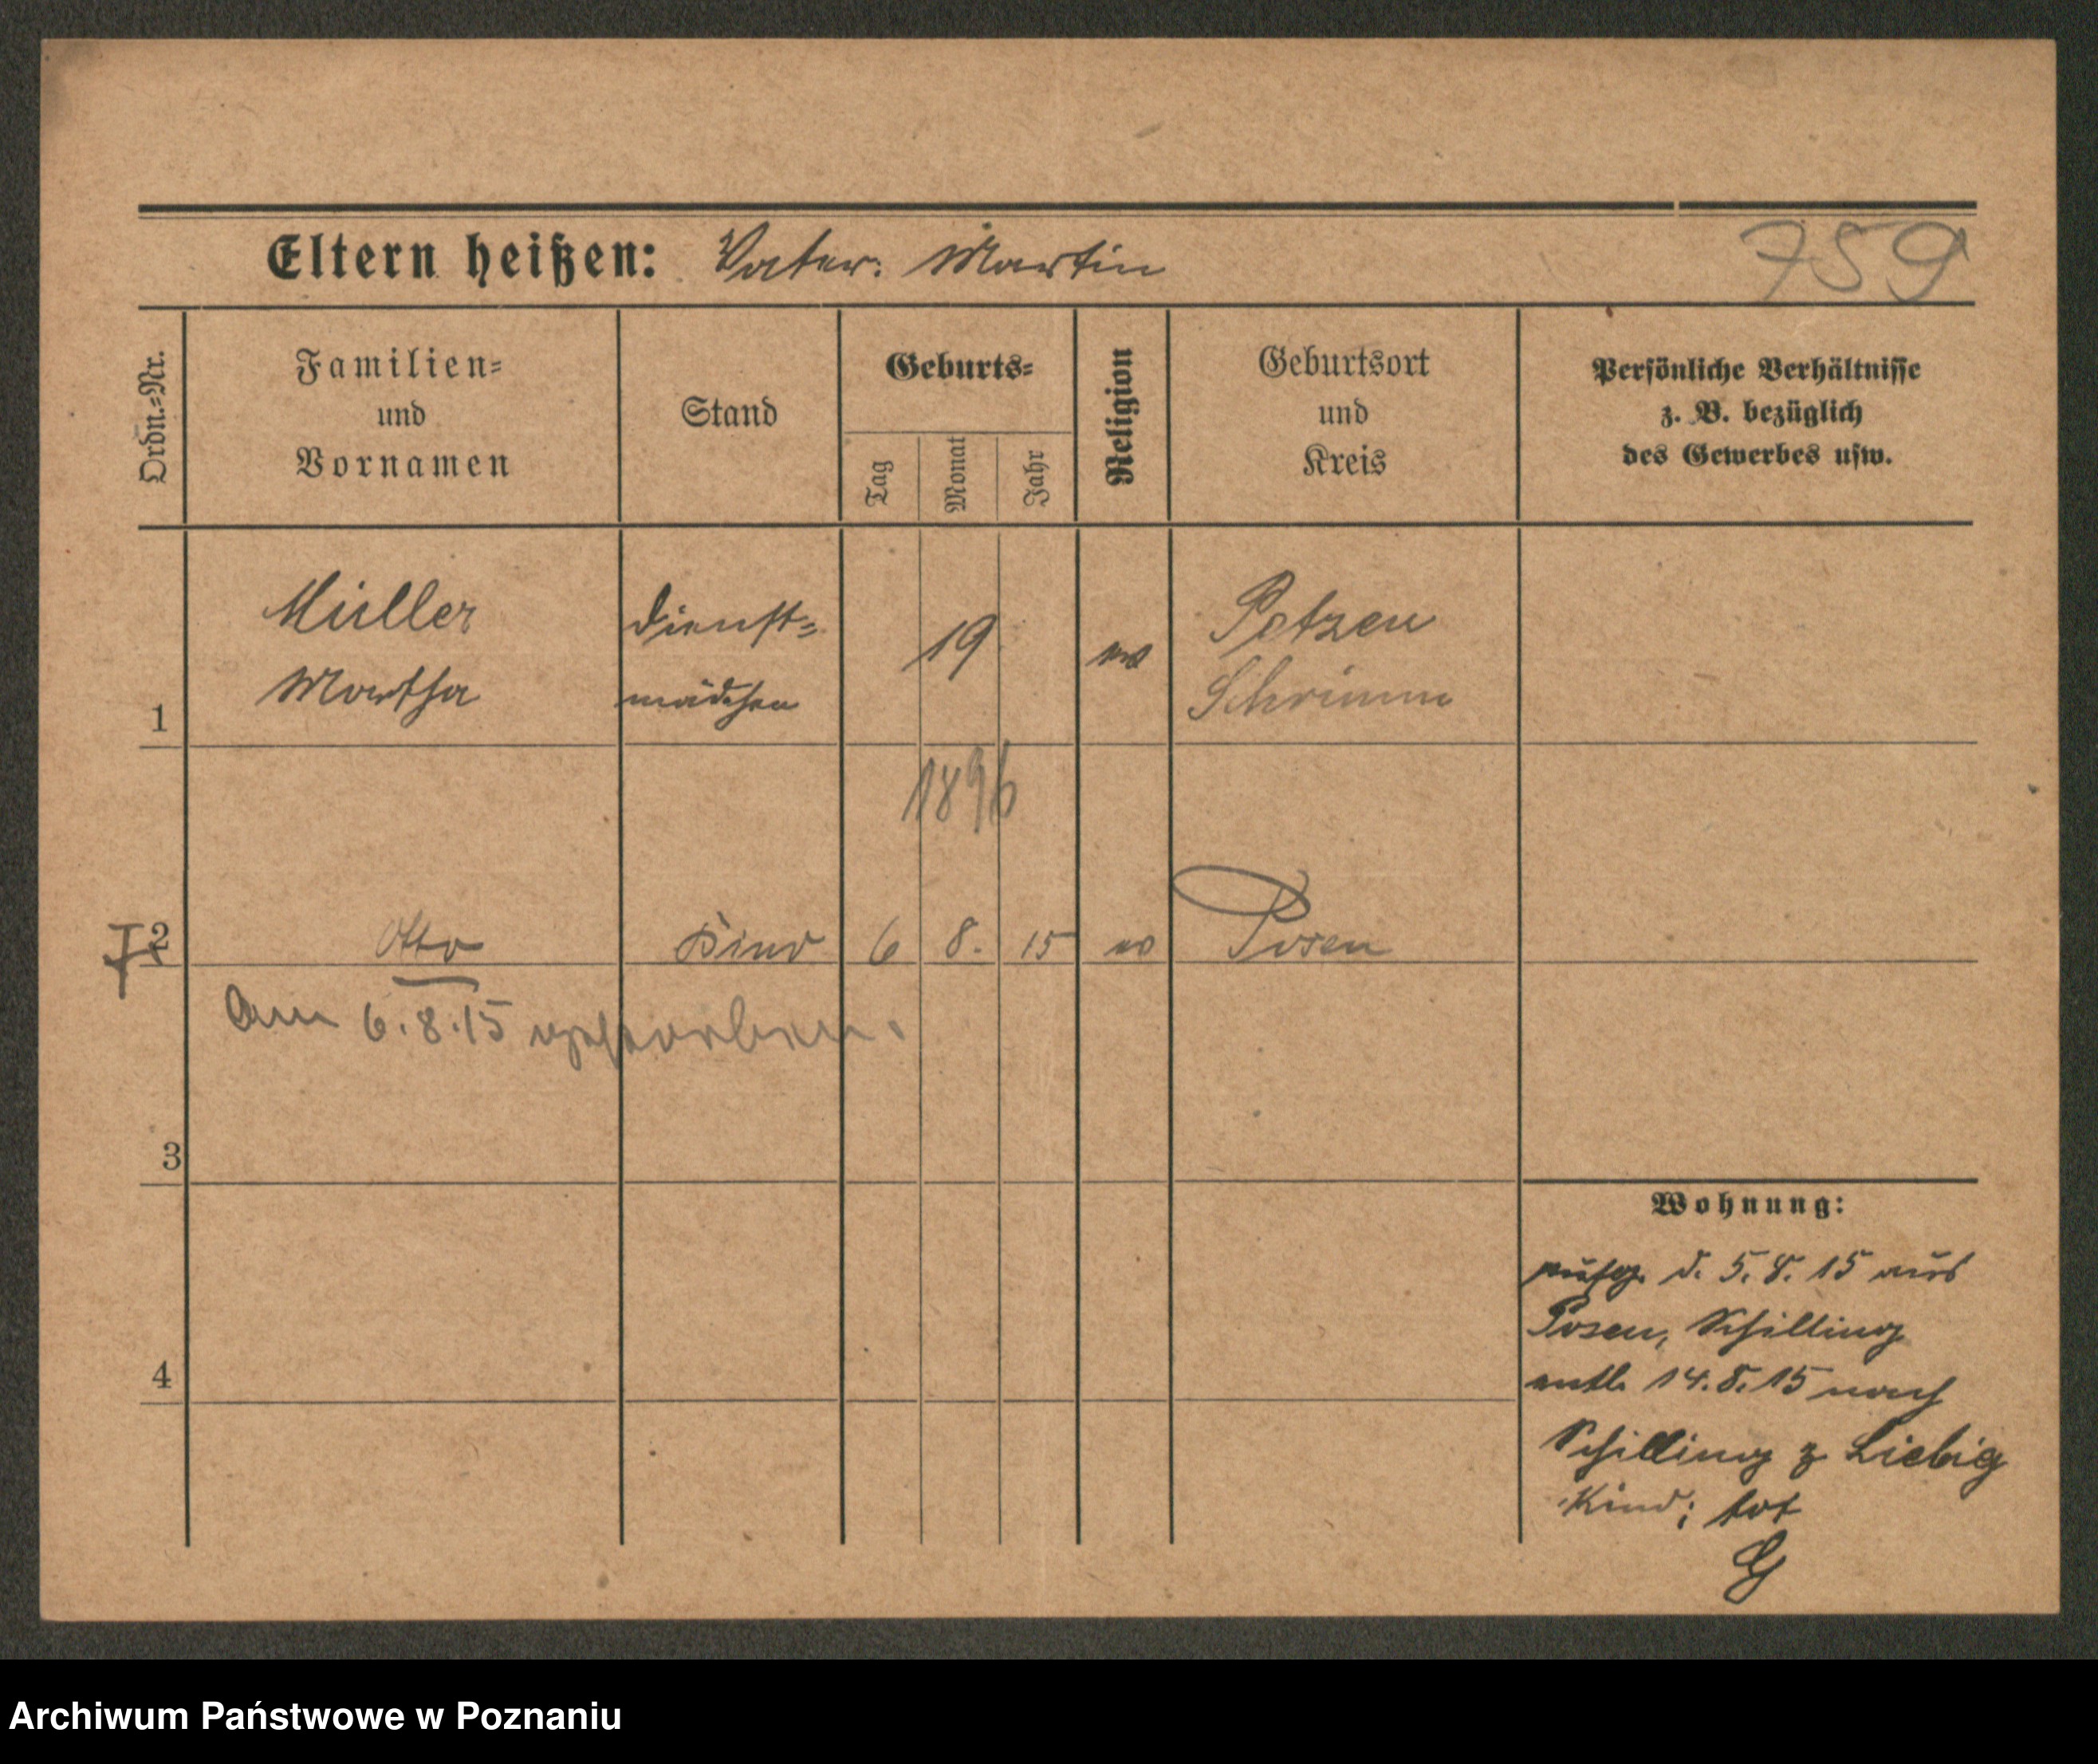 Eltern heißen: Vater: Martin
759
Ordn.=Nr.
Familien=
und
Vornamen
Stand
Geburts=
Tag
Monat
Jahr
Religion
Geburtsort
und
Kreis
Persönliche Verhältnisse
z. B. bezüglich
des Gewerbes usw.
1
Müller
Martha
Dienst=
mädchen
19
ev
Petzen
Schrimm
1896
2
Otto
Kind
6
8.
15
ev
Posen
Am 6.8.15 gestorben.
3
4
Wohnung:
d. 5.8.15 aus
Posen, Schilling
entl. 14.8.15 nach
Schilling z Liebig
Kind; tot
Archiwum Państwowe w Poznaniu